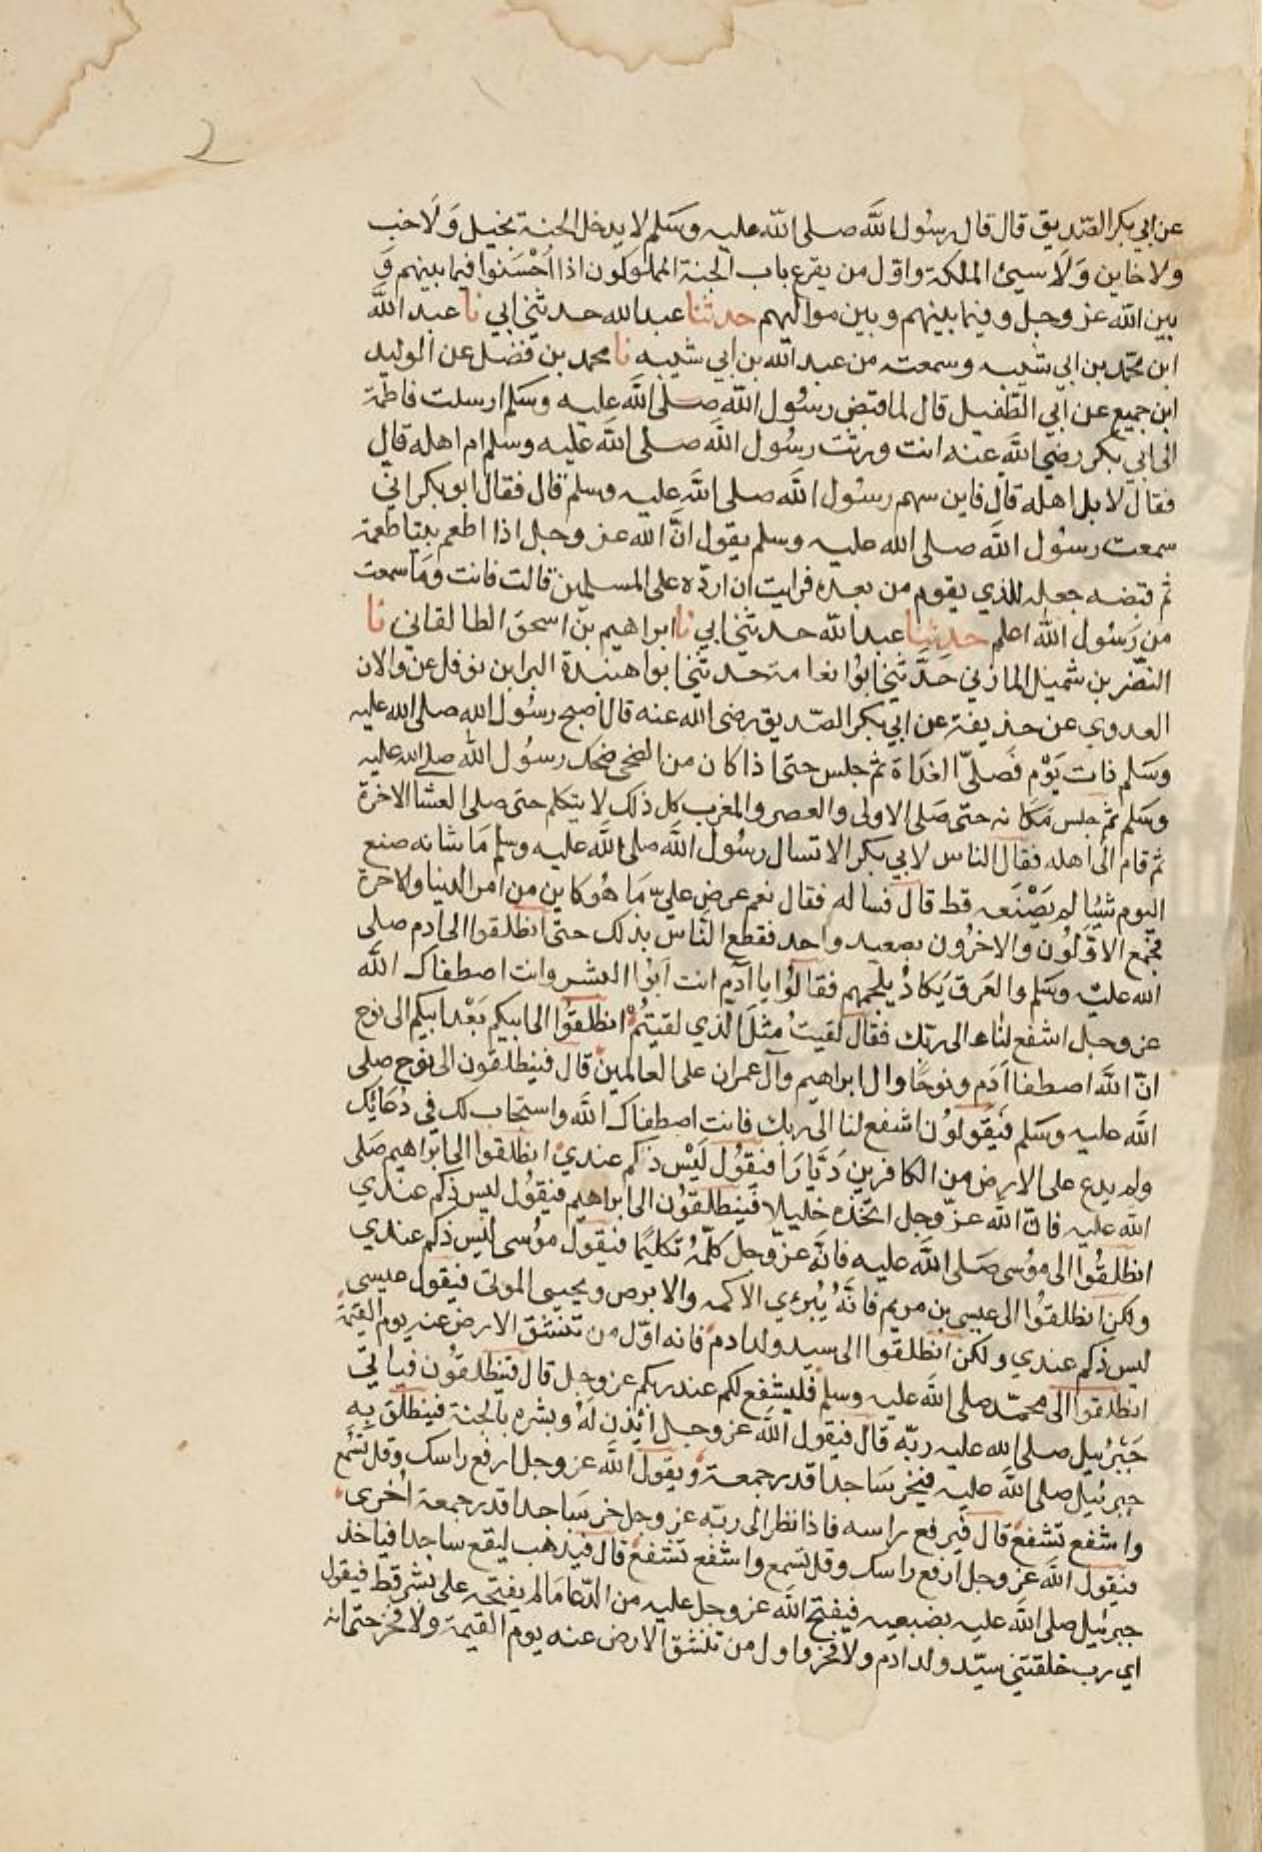 2
عن ابي بكر الصّديق قال قال رسُول الله صلى الله عليه وسَلم لا يدخل الجنة بخيل وَلَا خب
ولا خاين وَلَا سيئ الملكة واوّل من يقرع باب الجنة المملوكون اذا احْسَنوا فيما بينهم وَ
بين الله عز وجل وفيما بينهم وبين مواليهم حدثنا عبد الله حدثني ابي نا عبد الله
ابن محمّد بن ابي شيبه وسمعته من عبد الله بن ابي شيبه نا محمد بن فضل عن الوليد
ابن جميع عن ابي الطّفيل قال لما قبض رسُول الله صلى الله عليه وسَلم ارسلت فاطمة
الى ابي بكر رضي الله عنه انت ورثت رسُول الله صلى الله عليه وسلم ام اهله قال
فقال لا بل اهله قال فاين سهم رسُول الله صلى الله عليه وسلم قال فقال ابو بكر اني
سمعت رسُول الله صلى الله عليه وسلم يقول انّ الله عز وجل اذا اطعم نبيا طعمة
ثم قبضه جعله للذي يقوم من بعده فرايت ان اردّه على المسلمين قالت فانت وَمَا سمعت
من رَسُول الله اعلم حدثنا عبد الله حدثني ابي نا ابراهيم بن اسحق الطالقاني نا
النضر بن شميل المازني حَدَّثني ابوُا نعامة حدثني ابوا هنيدة البرا بن نوفل عن والان
العدوي عن حذيفة عن ابي بكر الصّديق رضي الله عنه قال اصبح رسُول الله صلى الله عليه
وسَلم ذات يَوْم فَصلىّ الغدَاة ثم جلس حتى اذا كان من الضحى ضحك رسُول الله صلى الله عليه
وسَلم ثم جلس مَكَانه حتى صَلى الاولى والعصر والمغرب كل ذلك لا يتكلم حتى صلى العشا الاخرة
ثم قام الى اهله فقال الناس لابي بكر الا تسال رسُول الله صلى الله عليه وسلم مَا شانه صنع
اليوم شيئا لم يَصْنعه قط قال فساله فقال نعم عرض عليّ مَا هُو كاين من امر الدنيا والاخرة
فجمع الاوّلوُن والاخرُون بصعيد واحد فقطع النّاس بذلك حتى انطلقوا الى ادم صلى
الله عليْه وسَلم والعَرق يَكادُ يلجمهم فقالوُا يا آدم انت ابوُا البشر وانت اصطفاك الله
عز وجل اشفع لنا الى ربّك فقال لَقيتُ مثلَ الذي لقيتُمْ انطلقوُا الى ابيكم بَعْد ابيكم الى نوح
انّ الله اصطفا آدَم ونوحًا وال ابراهيم وآل عمران على العالمين قال فينطلقون الى نوح صلى
الله عليه وسَلم فيَقولوُن اشفع لنا الى ربك فانت اصطفاك الله واستجاب لك في دُعَائِك
ولم يدع على الارض من الكافرين دَيَّارَا فيقوُل لَيْسَ ذاكم عندي انطلقوا الى ابراهيم صَلى
الله عليه فانّ الله عزّ وجل اتخذه خليلا فينطلقوُن الى ابراهيم فيقوُل ليس ذاكم عندي
انطلقُوا الى موُسى صَلى الله عليه فانّه عزّ وجل كلّمهُ تكليمًا فيقول موُسى ليس ذاكم عندي
ولكن انطلقوُا الى عيسى بن مريم فانّهُ يُبرِي الاكمه والابرص ويحيي الموتى فيقول عيسى
ليس ذاكم عندي ولكن انطلقوا الى سيد ولد ادم فانه اوّل من تنشق الارض عنه يوم القيمة
انطلقوا الى محمّد صلى الله عليه وسلم فليشفع لكم عند ربكم عز وجل قال فينطلقوُن فياتي
جَبْرُئيل صلى الله عليه ربّه قال فيقول الله عز وجل ائذن لهُ وبشره بالجنة فينطلق بِهِ
جبرئيل صلى الله عليه فيخر سَاجدا قدر جمعة ويقول الله عز وجل ارفع راسك وقل تُسْمع
واشفع تشفع قال فَيرفع راسه فاذا نظر الى ربّه عز وجل خر سَاجدا قدر جمعة اخْرى
فيقول الله عز وجل ارفع راسك وقل تسمع واشفع تشفع قال فيذهب ليقع ساجدا فياخذ
جبرئيل صلى الله عليه بضبعيه فيفتح الله عز وجل عليه من الدّعا مَا لم يفتحه على بشر قط فيقول
اي رب خلقتني سيّد ولد ادم ولا فخر واول من تنشق الارض عنه يوم القيمة ولا فخر حتى انه